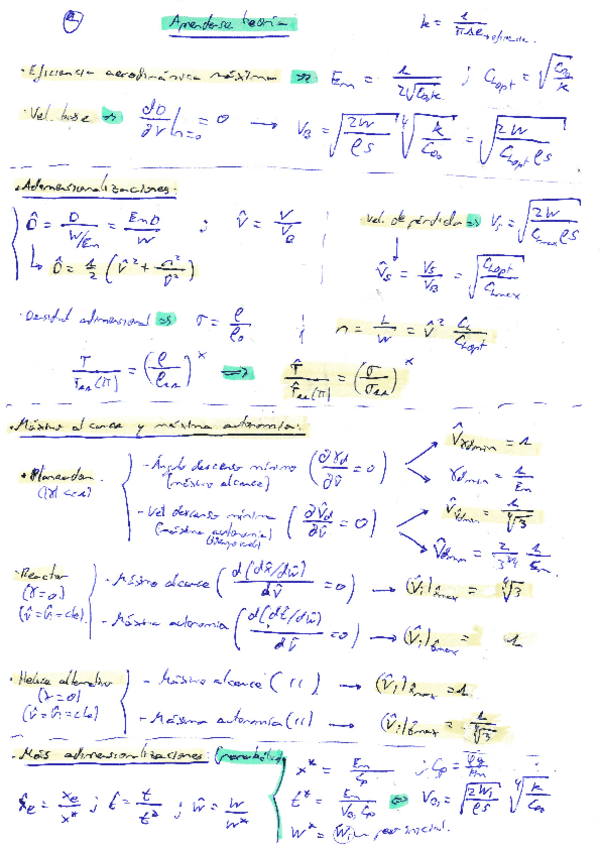 Aprenderse teoría
k = 1/(πΛe) → eficiencia.
· Eficiencia aerodinámica máxima ⇒ Em = 1/(2√(C_D0 k)) ; C_Lopt = √(C_D0/k)
· Vel. base ⇒ ∂D/∂V|n=0 = 0 → V_B = √(2W/(ρS)) ∜(k/C_D0) = √(2W/(C_Lopt ρS))
· Adimensionalizaciones:
D̂ = D/(W/Em) = Em D/W ; V̂ = V/V_B
· Vel. de pérdida ⇒ V_s = √(2W/(C_Lmax ρS))
↳ D̂ = 1/2 (V̂² + n²/V̂²)
V̂_s = V_s/V_B = √(C_Lopt/C_Lmax)
· Densidad adimensional ⇒ σ = ρ/ρ₀ ; n = L/W = V̂² C_L/C_Lopt
T/T_11(π) = (ρ/ρ_11)^x ⇒ T̂/T̂_11(π) = (σ/σ_11)^x
· Máximo alcance y máxima autonomía:
· Planeador (|γ| << 1)
- Ángulo descenso mínimo (∂γd/∂V̂ = 0) (máximo alcance)
V̂γdmin = 1
γdmin = 1/Em
- Vel descenso mínima (∂V̂d/∂V̂ = 0) (máxima autonomía)
V̂ V̂dmin = 1/∜3
V̂dmin = 2/3^(3/4) 1/Em
· Reactor (γ = 0) (V̂ = V̂i = cte)
- Máximo alcance (d(dx̂/dŵ)/dV̂ = 0) → (V̂i)x̂max = ∜3
- Máxima autonomía (d(dt̂/dŵ)/dV̂ = 0) → (V̂i)t̂max = 1
· Hélice alternativo (γ = 0) (V̂ = V̂i = cte)
- Máximo alcance (11) → (V̂i)x̂max = 1.
- Máxima autonomía (11) → (V̂i)t̂max = 1/∜3
· Más adimensionalizaciones:
x̂e = xe/x* ; t̂ = t/t* ; ŵ = w/w*
x* = Em/Cp
t* = Em/(V_B, Cp) ⇔ V_B, = √(2Wi/(ρS)) ∜(k/C_D0)
w* = Wi → per inicial.